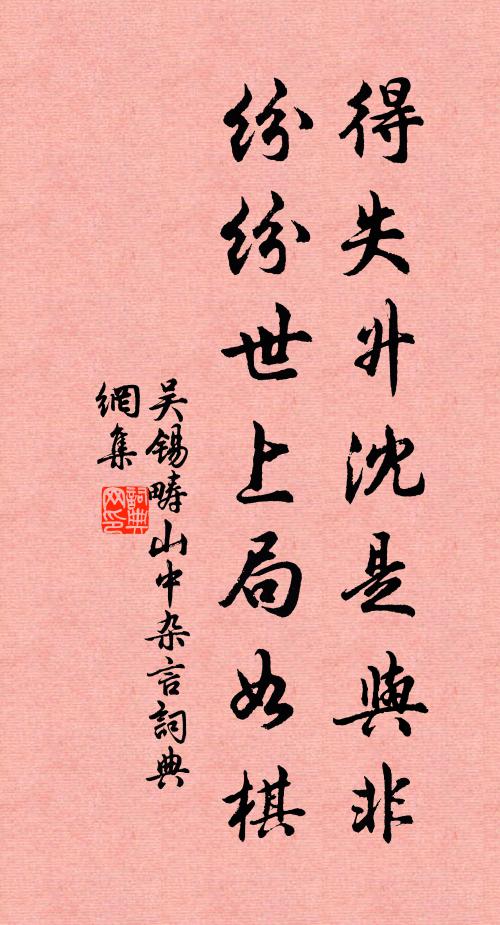 得失升沈是與非
紛紛世上局如棋
吴錫疇山中杂言詞典
網集
詞典
网印